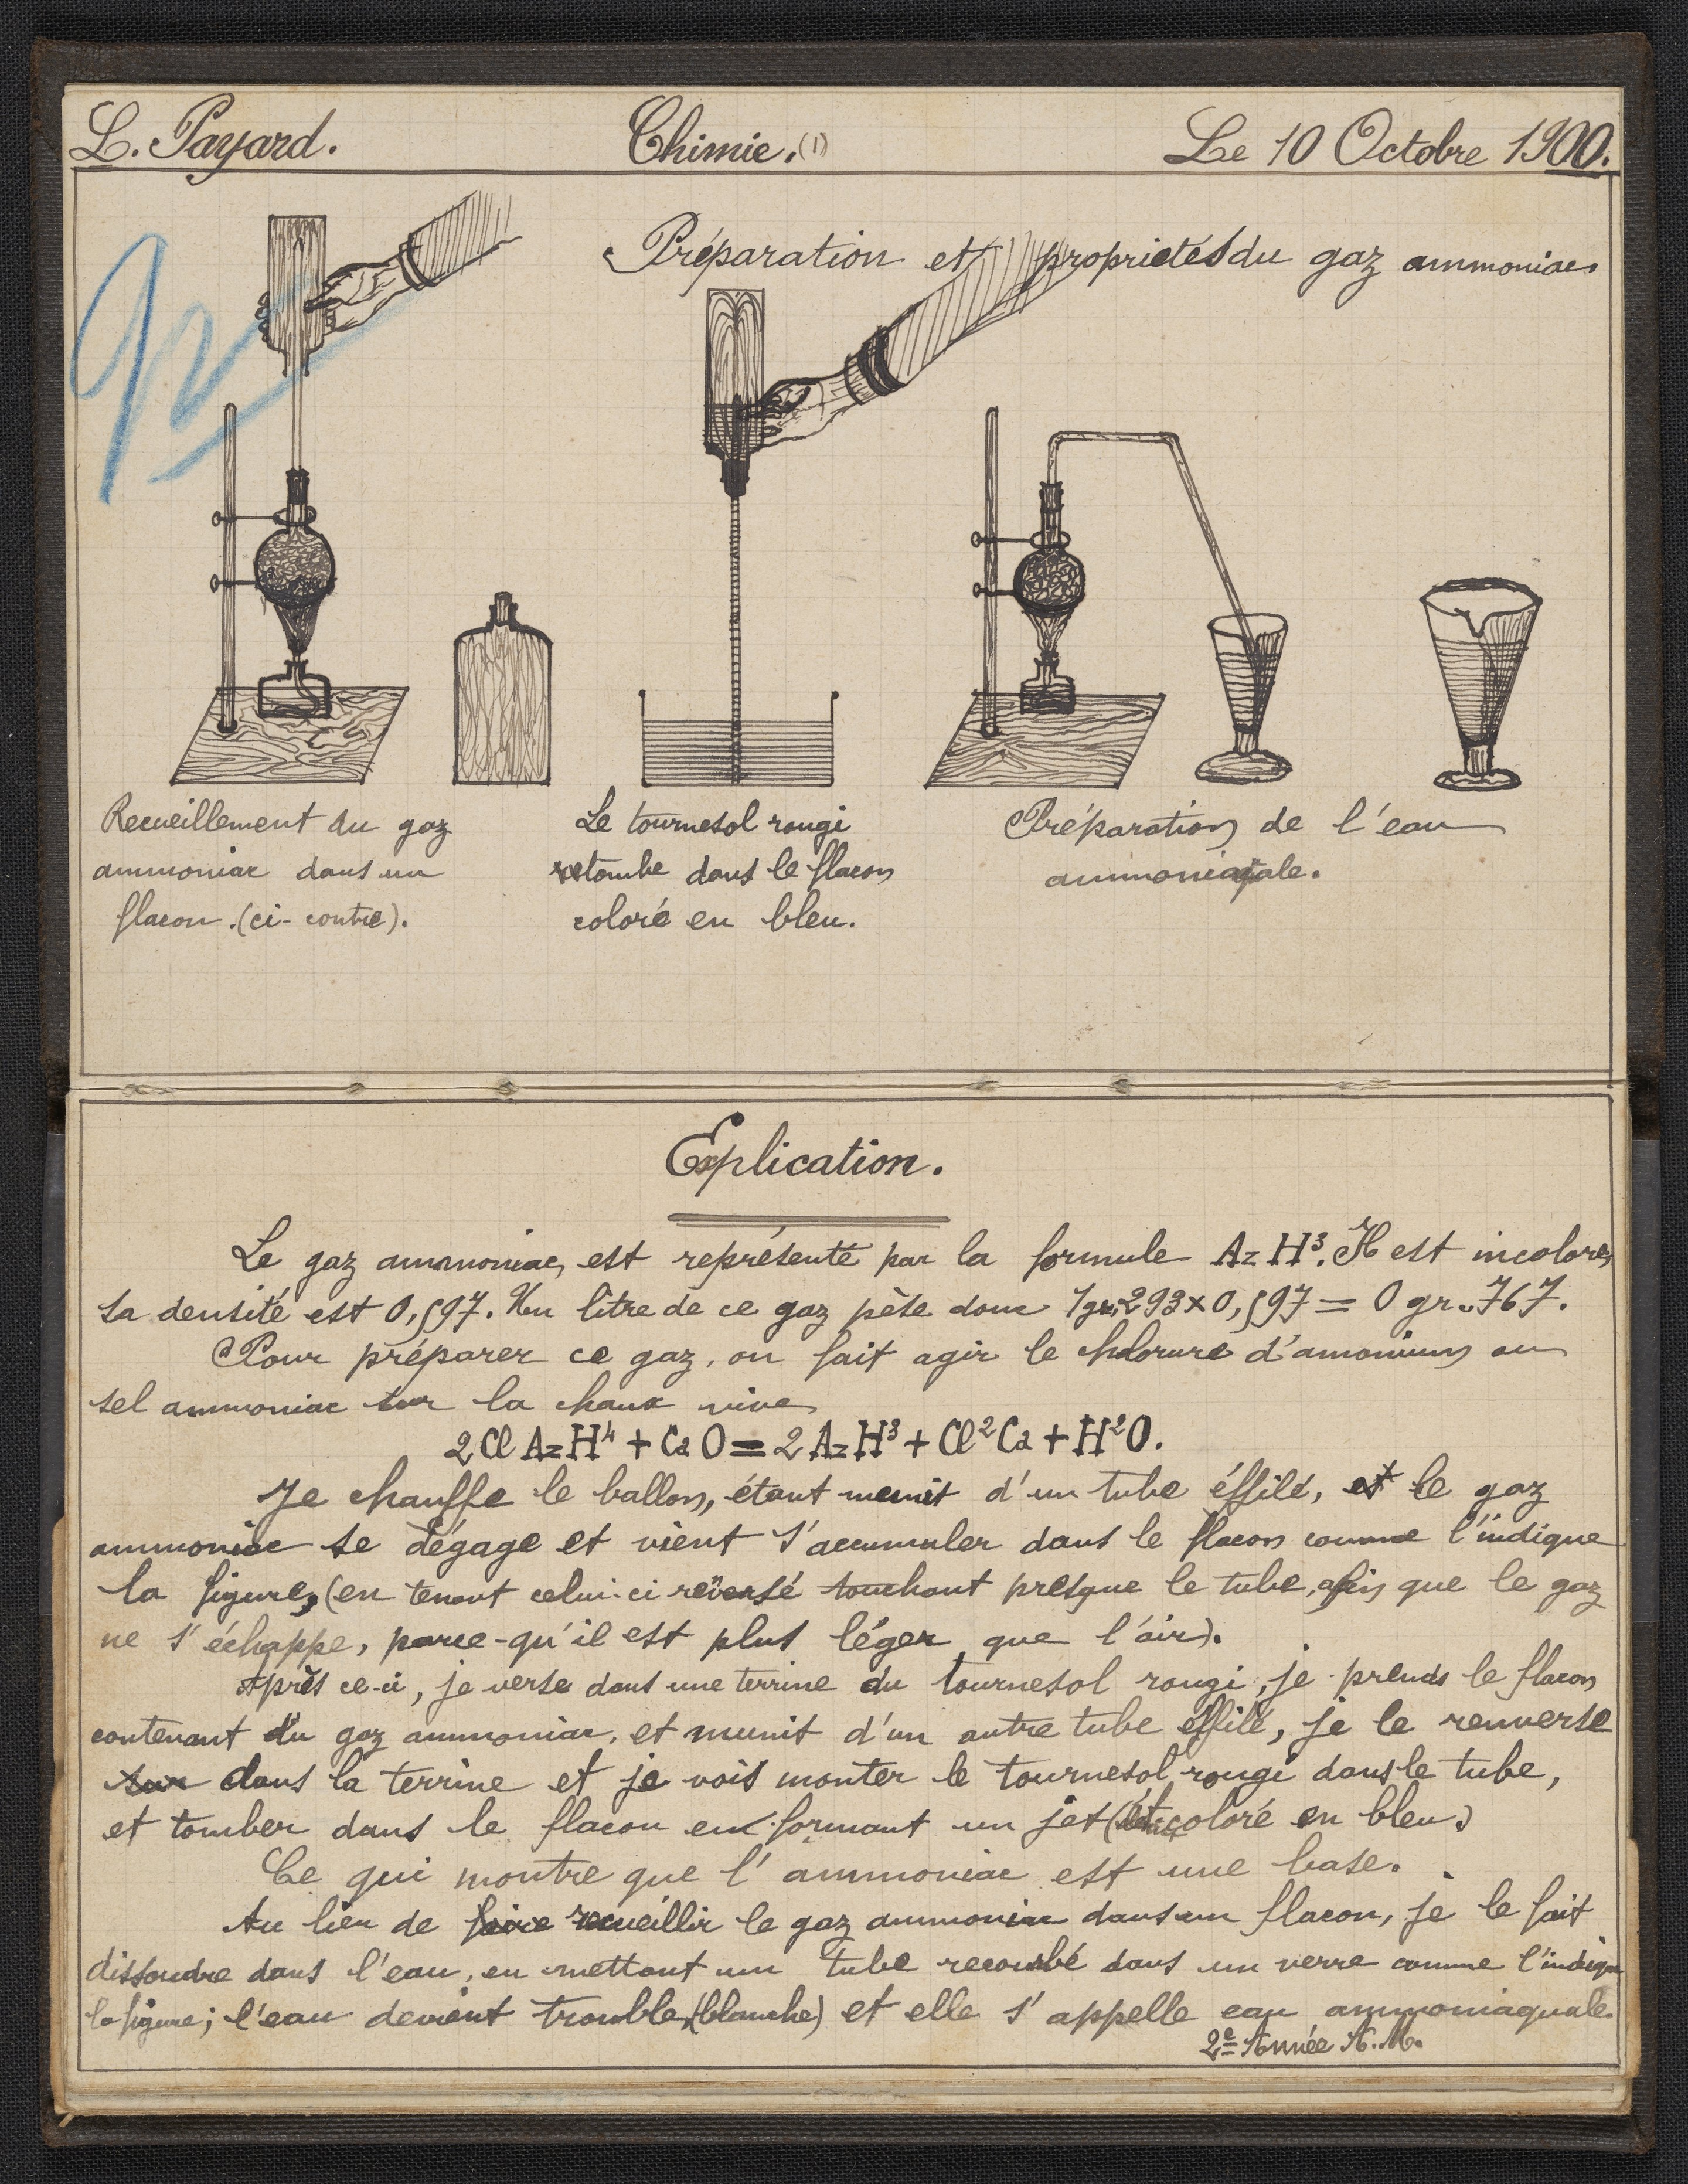 L. Payard.
Chimie. (1)
Le 10 Octobre 1900.
Préparation et propriétés du gaz ammoniac.
Recueillement du gaz
ammoniac dans un
flacon. (ci-contre).
Le tournesol rougi
retombe dans le flacon
coloré en bleu.
Préparation de l'eau
Explication.
Le gaz ammoniac, est représenté par la formule AzH³. Il est incolore,
sa densité est 0,597. Un litre de ce gaz pèse donc 1gr,293 x 0,597 = 0 gr. 767.
Pour préparer ce gaz, on fait agir le chlorure d'amonium ou
sel ammoniac sur la chaux vive
2 Cl AzH⁴ + CaO = 2 AzH³ + Cl²Ca + H²O.
Je chauffe le ballon, étant munit d'un tube éffilé, et le gaz
ammoniac se dégage et vient s'accumuler dans le flacon comme l'indique
la figure, (en tenant celui-ci renversé touchant presque le tube, afin que le gaz
ne s'échappe, parce-qu'il est plus léger que l'air).
Après ce-ci, je verse dans une terrine du tournesol rougi, je prends le flacon
contenant du gaz ammoniac, et munit d'un autre tube éffilé, je le renverse
sur dans la terrine et je vois monter le tournesol rougi dans le tube,
et tomber dans le flacon en formant un jet ( coloré en bleu.)
Ce qui montre que l'ammoniac est une base.
Au lieu de faire recueillir le gaz ammoniac dans un flacon, je le fait
dissoudre dans l'eau, en mettant un tube recourbé dans un verre comme l'indique
la figure; l'eau devient trouble, (blanche) et elle s'appelle eau ammoniaquale.
2e Année A. M.